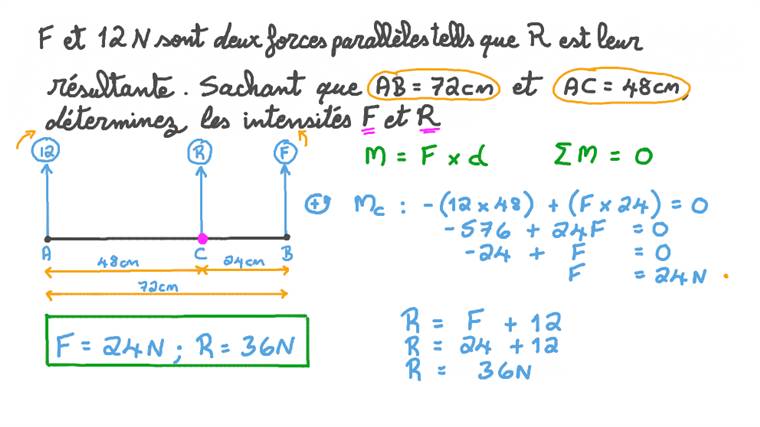 F et 12N sont deux forces parallèles tells que R est leur
résultante. Sachant que AB = 72cm et AC = 48cm,
déterminez les intensités F et R
12 R F
A C B
48cm 24cm
72cm
F = 24N ; R = 36N
M = F × d ΣM = 0
+ Mc : -(12×48) + (F×24) = 0
-576 + 24F = 0
-24 + F = 0
F = 24N
R = F + 12
R = 24 + 12
R = 36N